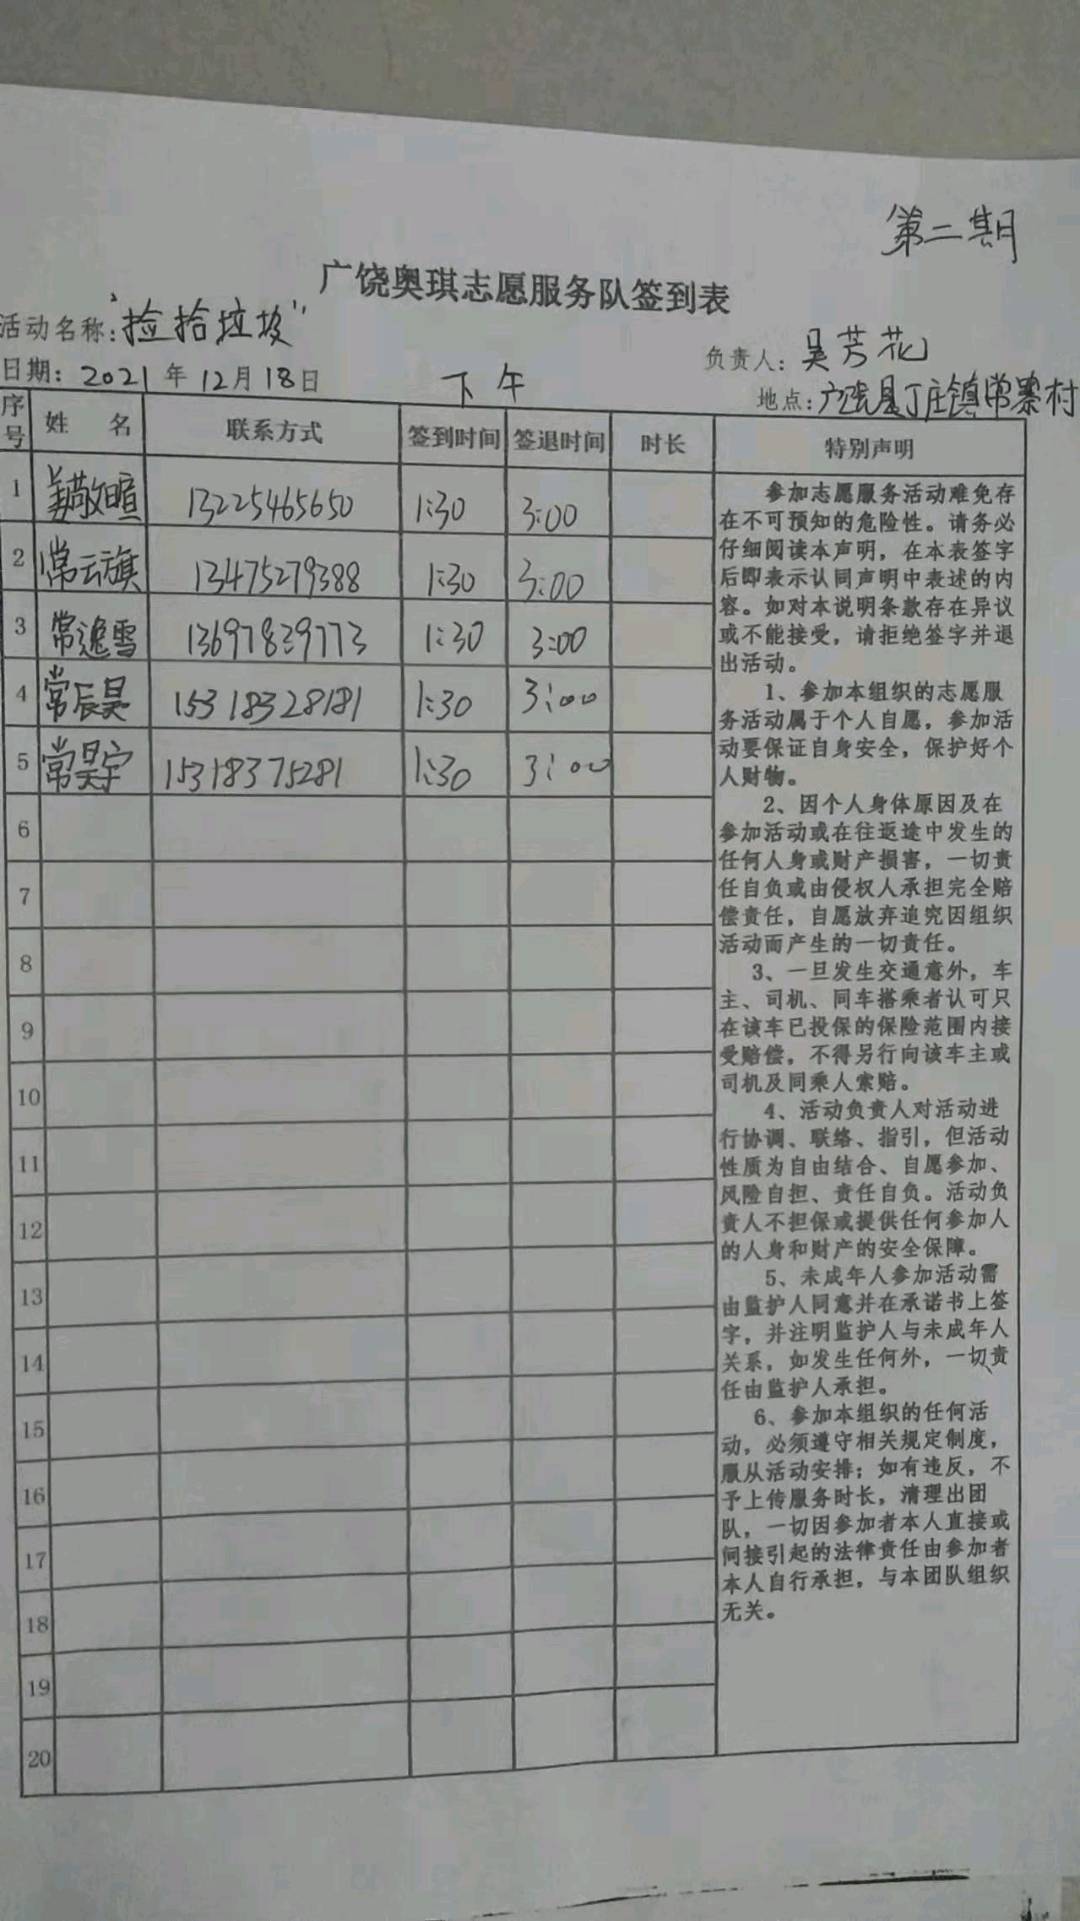 第二期
广饶奥琪志愿服务队签到表
活动名称:"捡拾垃圾"
负责人: 吴芳花
日期: 2021 年 12月 18日 下午
地点: 广饶县丁庄镇常寨村
序号 姓 名 联系方式 签到时间 签退时间 时长 特别声明
1 姜敬暄 13225465650 1:30 3:00
2 常云旗 13475279388 1:30 3:00
3 常逸雪 13697839773 1:30 3:00
4 常辰昊 15318328181 1:30 3:00
5 常昊宇 15318375281 1:30 3:00
6
7
8
9
10
11
12
13
14
15
16
17
18
19
20
参加志愿服务活动难免存
在不可预知的危险性。请务必
仔细阅读本声明，在本表签字
后即表示认同声明中表述的内
容。如对本说明条款存在异议
或不能接受，请拒绝签字并退
出活动。
1、参加本组织的志愿服
务活动属于个人自愿，参加活
动要保证自身安全，保护好个
人财物。
2、因个人身体原因及在
参加活动或在往返途中发生的
任何人身或财产损害，一切责
任自负或由侵权人承担完全赔
偿责任，自愿放弃追究因组织
活动而产生的一切责任。
3、一旦发生交通意外，车
主、司机、同车搭乘者认可只
在该车已投保的保险范围内接
受赔偿，不得另行向该车主或
司机及同乘人索赔。
4、活动负责人对活动进
行协调、联络、指引，但活动
性质为自由结合、自愿参加、
风险自担、责任自负。活动负
责人不担保或提供任何参加人
的人身和财产的安全保障。
5、未成年人参加活动需
由监护人同意并在承诺书上签
字，并注明监护人与未成年人
关系，如发生任何外，一切责
任由监护人承担。
6、参加本组织的任何活
动，必须遵守相关规定制度，
服从活动安排；如有违反，不
予上传服务时长，清理出团
队，一切因参加者本人直接或
间接引起的法律责任由参加者
本人自行承担，与本团队组织
无关。